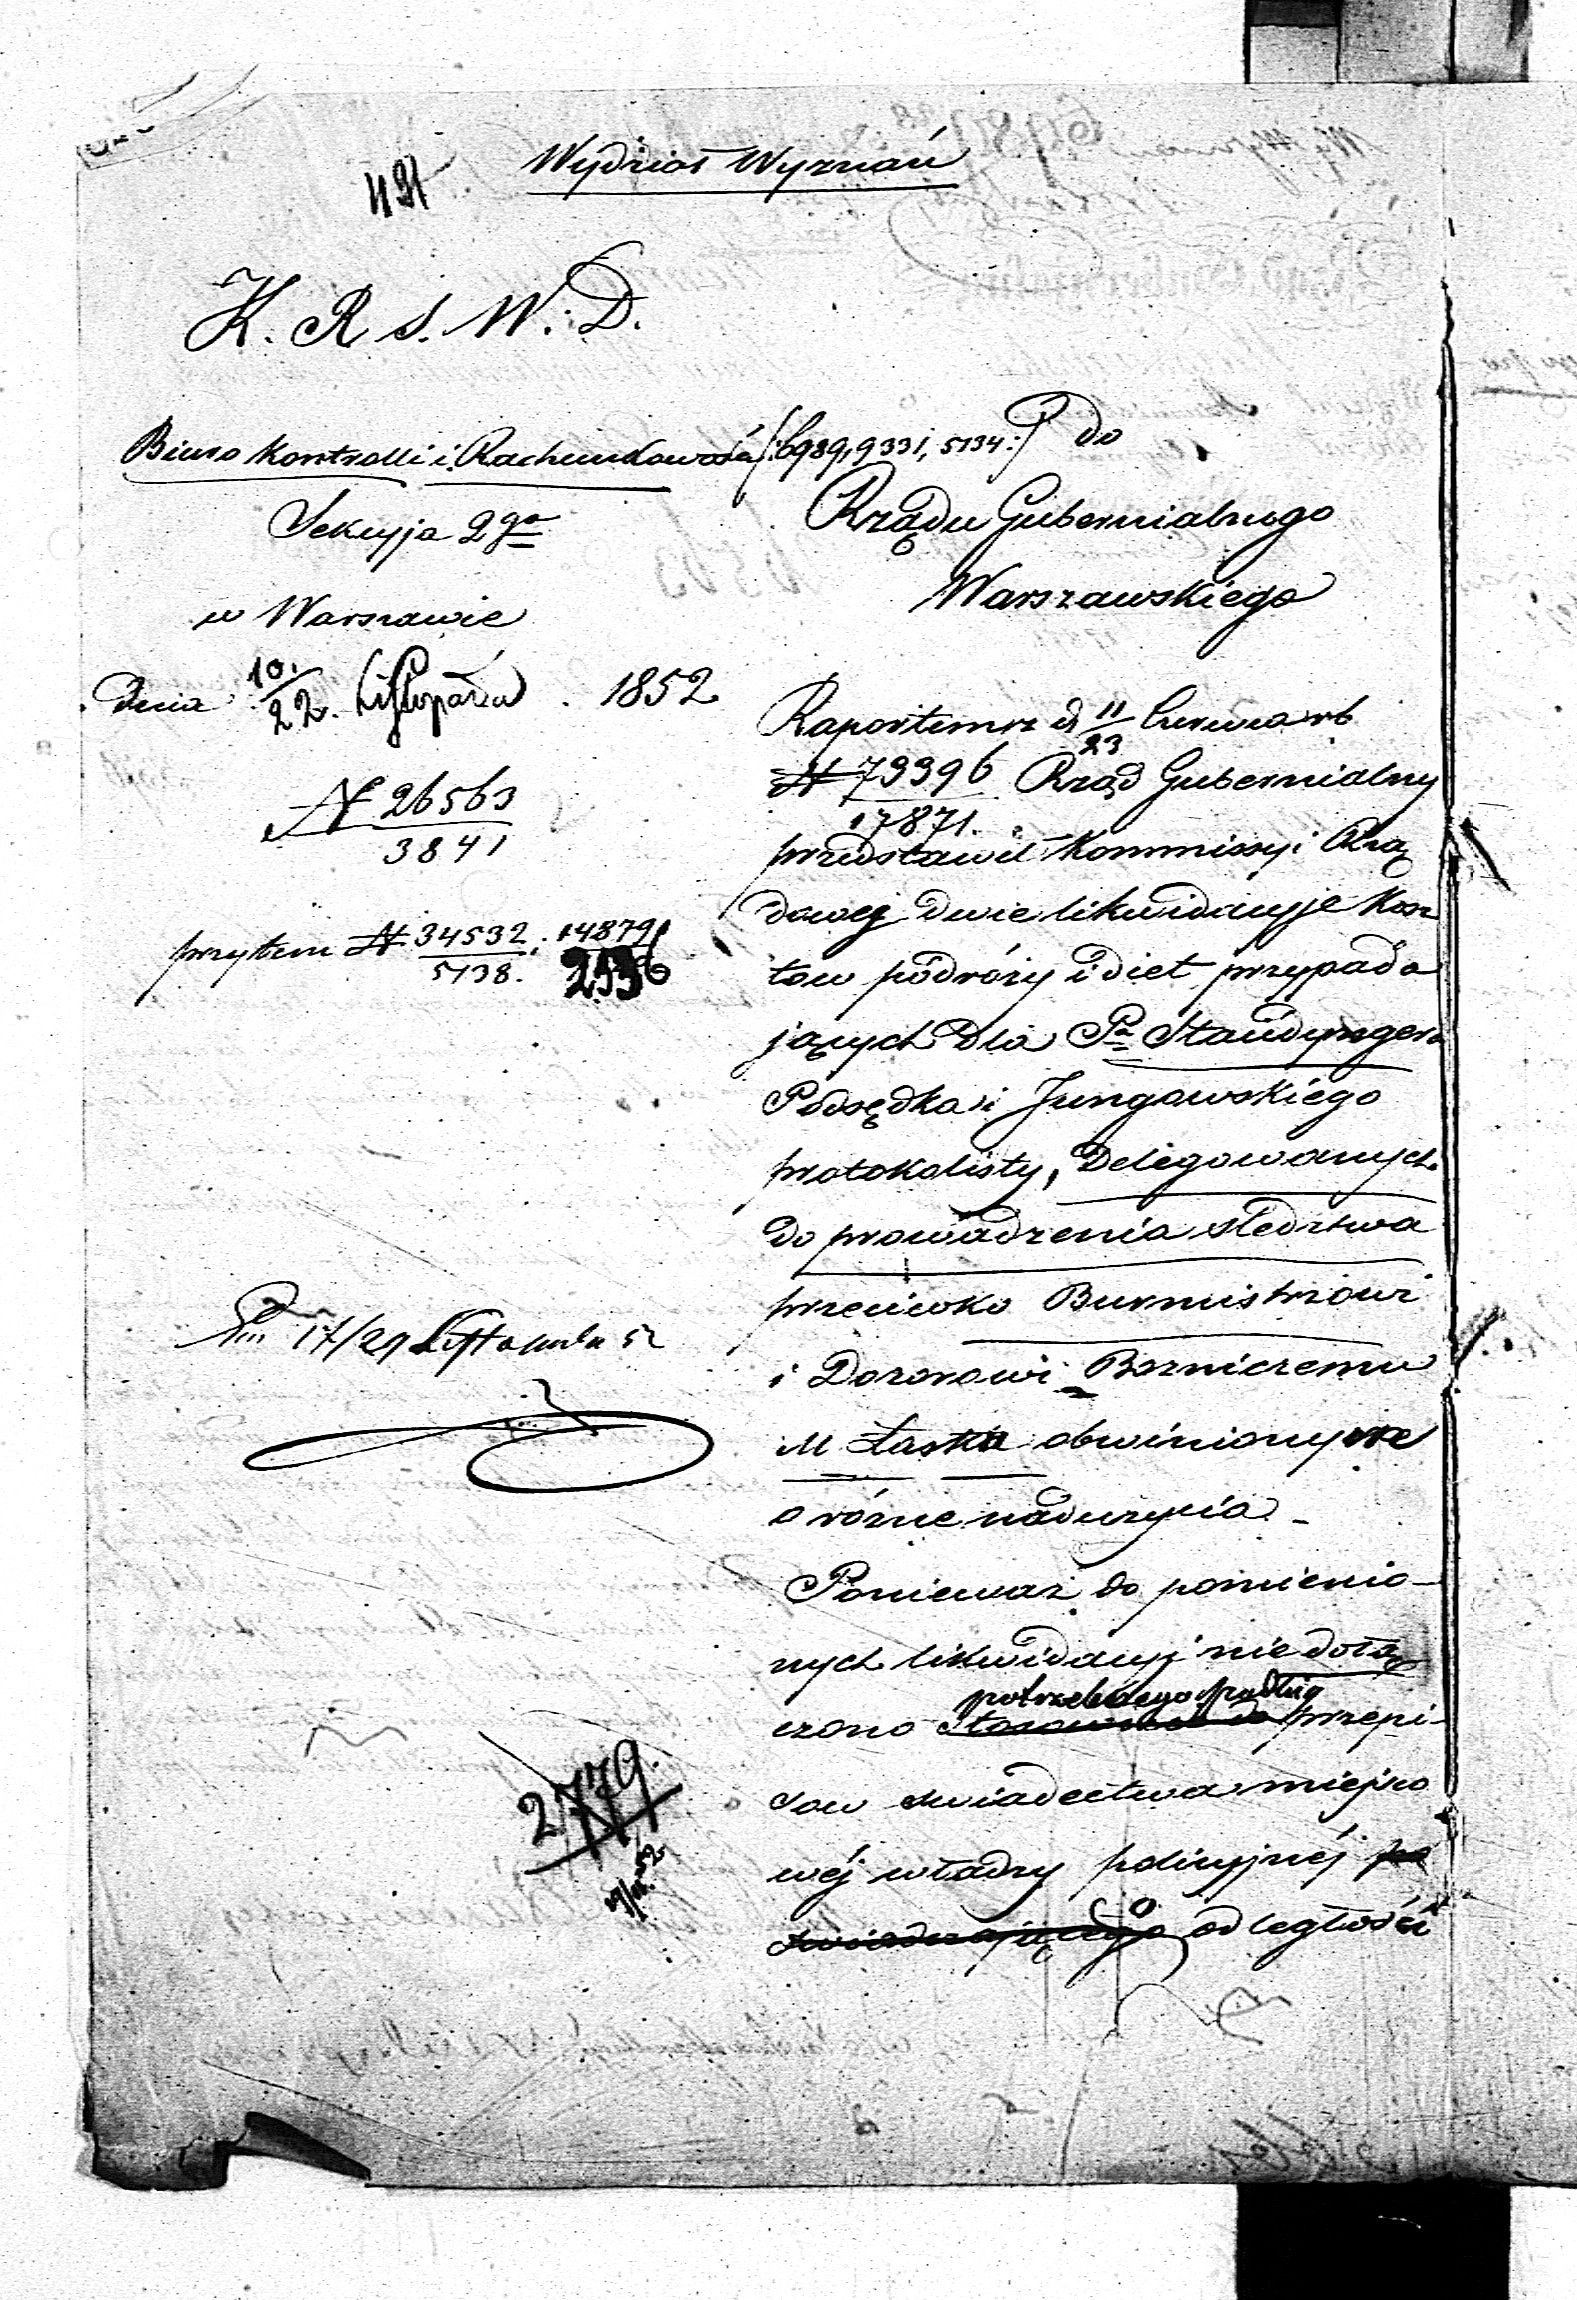 Wydział Wyznań
K. R. S. W. D.
Biuro Kontrolli i Rachunkowości /:6989, 9331, 5134:/
Sekcyja 2ga
w Warszawie
Dnia 10/22 Listopada 1852
N 26563/3841
przytem N 34532/5138. 14879/2536
17/29 Listopada 52
2779.
do
Rządu Gubernialnego
Warszawskiego
Raportem z d 11/23 Czerwca rb
N 79396/17871. Rząd Gubernialny
przedstawił Kommissyi Rzą
dowej dwie likwidacyje kosz
tow podróży i diet przypada
jących dla Pa Staudyngera
Podsędka i Jungowskiego
protokolisty, Delegowanych
do prowadzenia śledztwa
przeciwko Burmistrzowi
i Dozorowi Bozniczemu
M Łaska obwinionym
o różne nadużycia –
Ponieważ do pomienio–
nych likwidacyj nie dołą
potrzebnego podług
czono Stosownie do przepi–
sow świadectwa miejsco
wéj władzy policyjnéj po
świadczającego o odległości